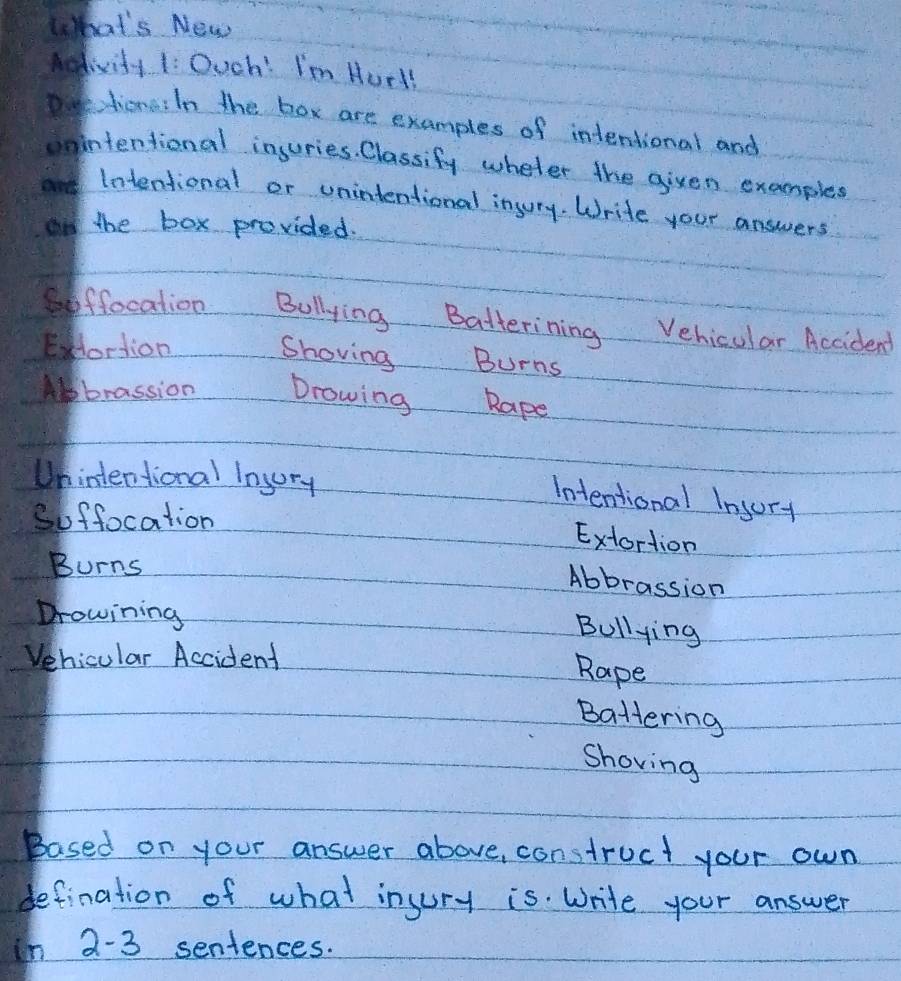 What's New
Activity 1: Ouch! I'm Hurt!
Directions: In the box are examples of intentional and
unintentional injuries. Classify wheter the given examples
are Intentional or unintentional injury. Write your answers
on the box provided.
Suffocation Bullying Batterining Vehicular Accident
Extortion Shoving Burns
Abbrassion Drowing Rape
Unintentional Injury Intentional Injury
Suffocation Extortion
Burns Abbrassion
Drowining Bullying
Vehicular Accident Rape
Battering
Shoving
Based on your answer above, construct your own
defination of what injury is. Write your answer
in 2-3 sentences.